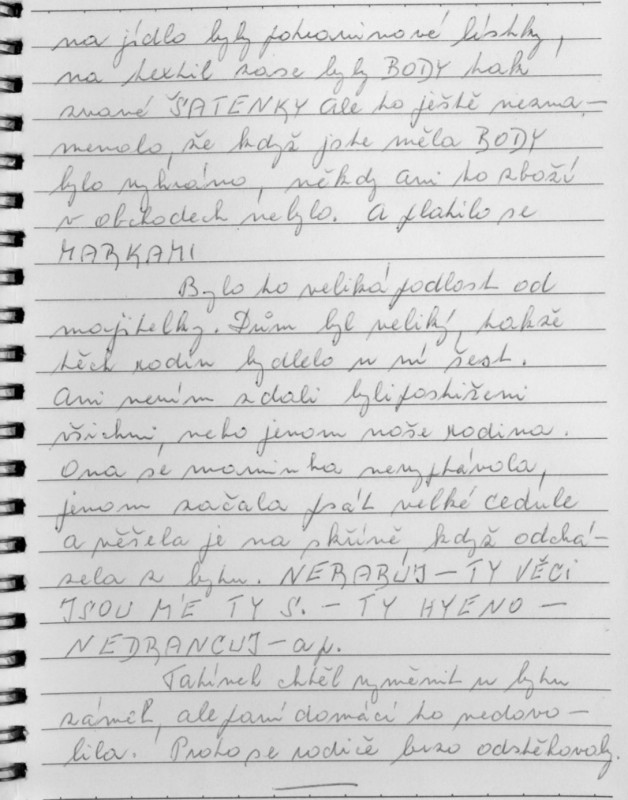 na jídlo byly potravinové lístky,
na textil zase byly BODY tak
zvané ŠATENKY ale to ještě nezna-
menalo, že když jste měla BODY
bylo vyhráno, někdy ani to zboží
v obchodech nebylo. A platilo se
MARKAMI
Bylo to veliká podlost od
majitelky. Dům byl veliký, takže
těch rodin bydlelo u ní šest.
Ani nevím zdali byli postiženi
všichni, nebo jenom naše rodina.
Ona se maminka nevyptávala,
jenom začala psát velké cedule
a věšela je na skříně, když odchá-
zela z bytu. NERABUJ - TY VĚCI
JSOU MÉ TY S. - TY HYENO -
NEDRANCUJ - a p.
Tatínek chtěl vyměnit u bytu
zámek, ale paní domácí to nedovo-
lila. Proto se rodiče brzo odstěhovaly.